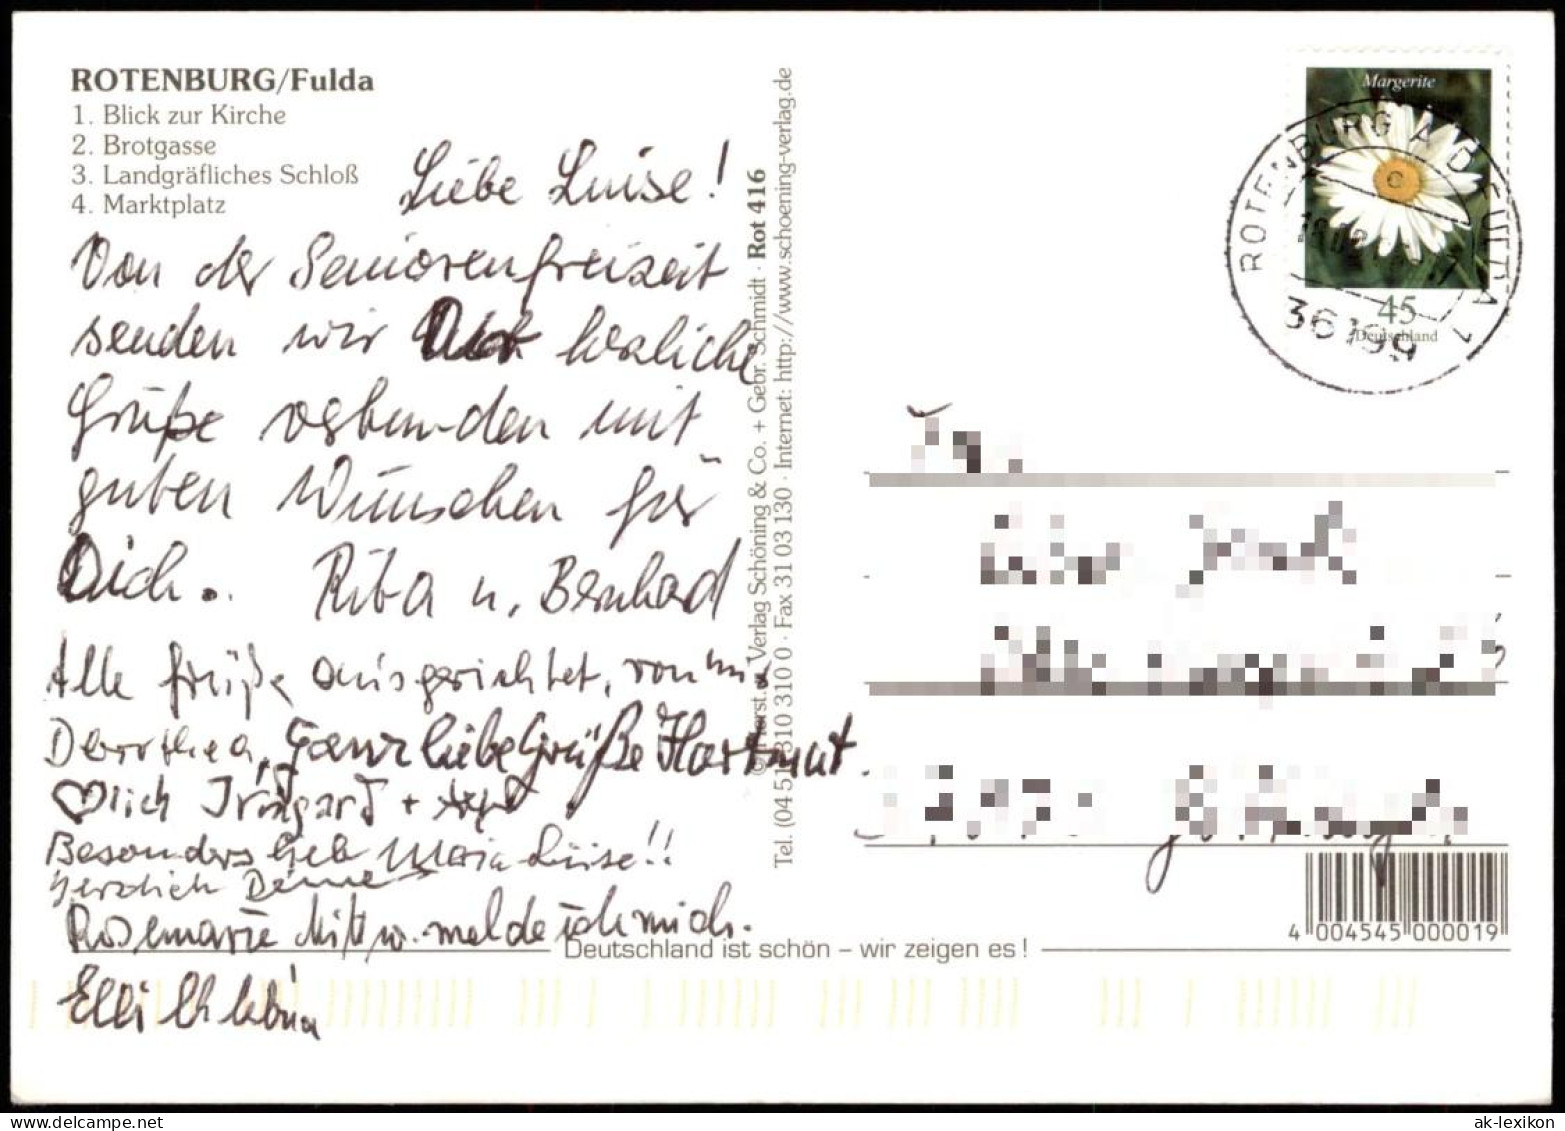 ROTENBURG/Fulda
1. Blick zur Kirche
2. Brotgasse
3. Landgräfliches Schloß
4. Marktplatz
Liebe Luise!
Von der Seniorenfreizeit
senden wir herzliche
Grüße verbunden mit
guten Wünschen für
Dich.
Rita u. Bernhard
Alle Grüße ausgerichtet, von mir
Dorothea, Ganz liebe Grüße Hartmut.
Dich Irmgard +
Besonders lieb Maria-Luise!!
herzlich Deine
Rosemarie melde ich mich.
Elli
© Horst. Verlag Schöning & Co. + Gebr. Schmidt · Rot 416
Tel. (04 51) 310 310 0 · Fax 31 03 130 · Internet: http://www.schoening-verlag.de
Margerite
45
Deutschland
ROTENBURG A D FULDA 1
36199
4 004545 000019
Deutschland ist schön – wir zeigen es !
ak-lexikon.com